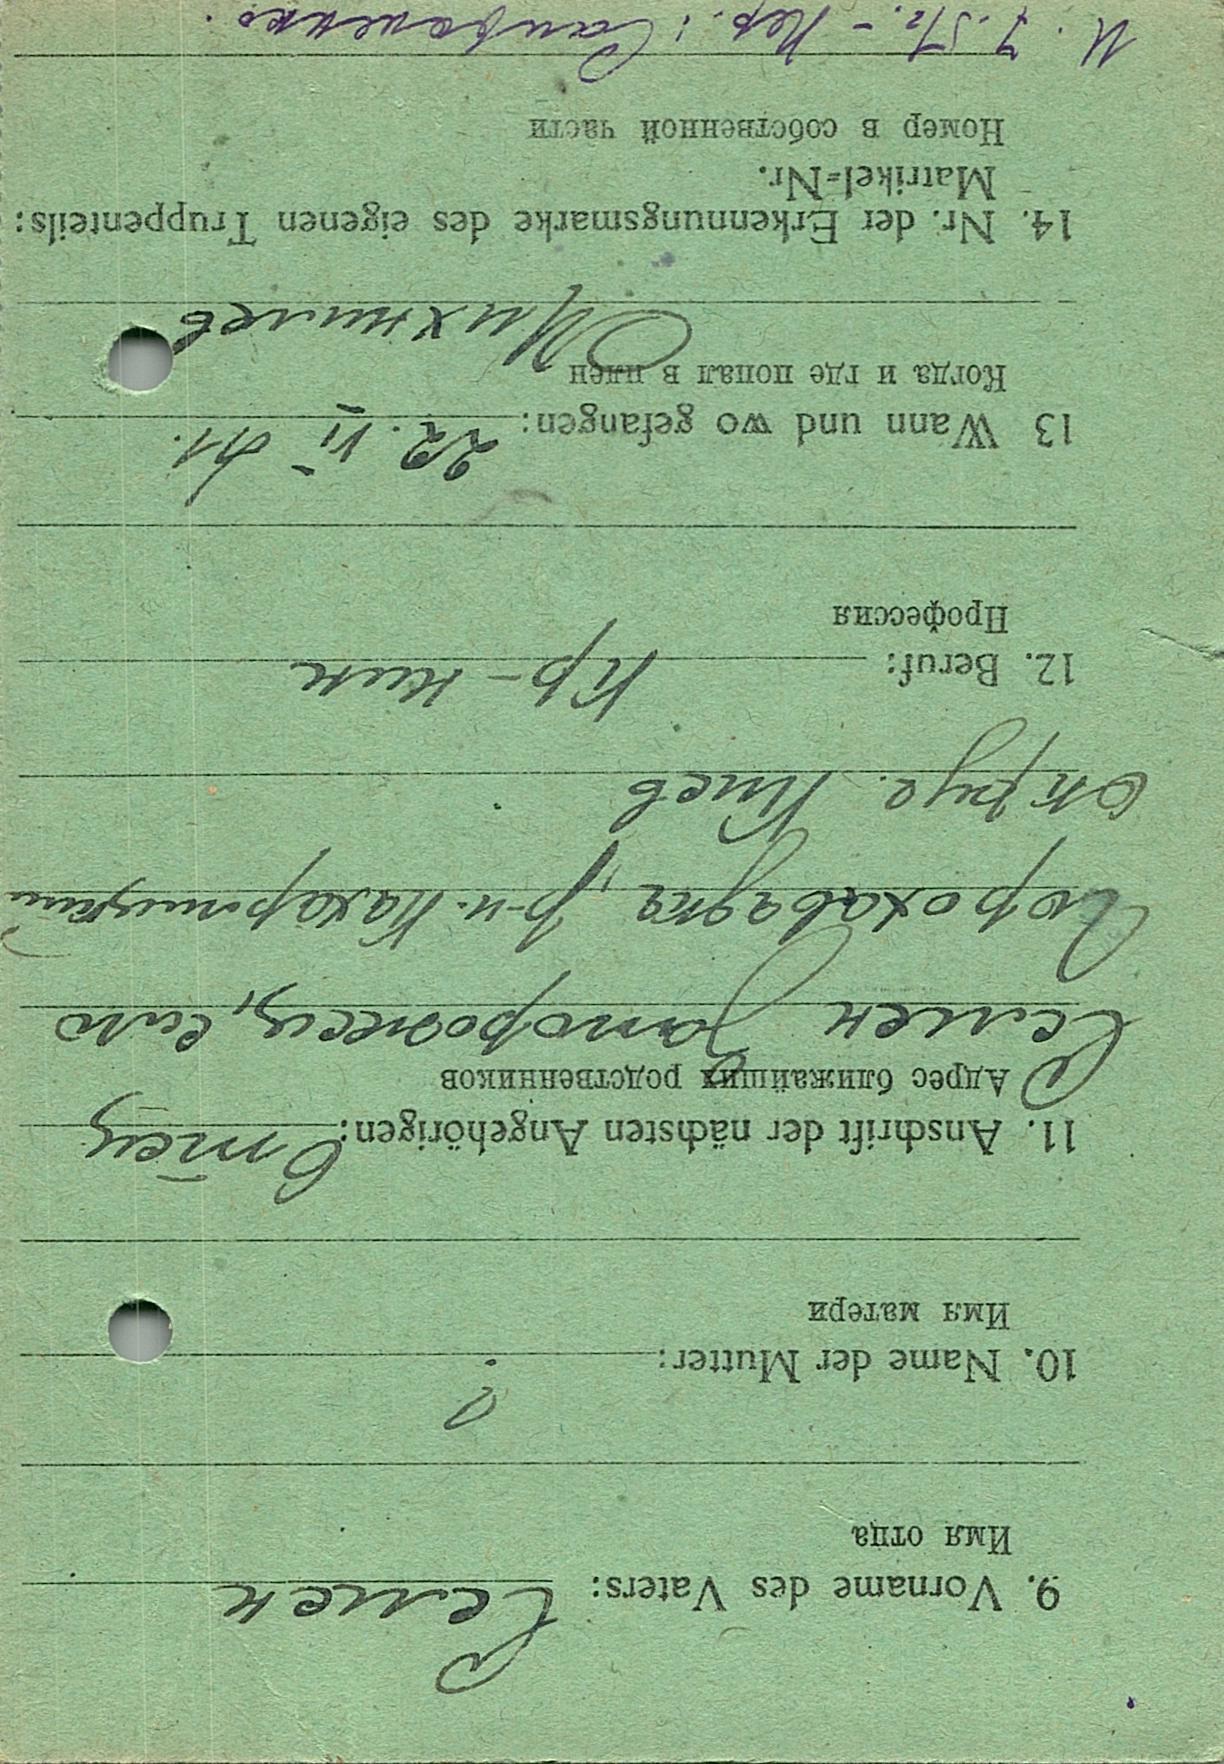 9. Vorname des Vaters: Семен
Имя отца
10. Name der Mutter: ?
Имя матери
11. Anschrift der nächsten Angehörigen: Отец
Адрес ближайших родственников
Семен Запорожец, село
р-н.
округ. Киев
12. Beruf: Кр-нин
Профессия
13 Wann und wo gefangen: 22. VI 41.
Когда и где попал в плен
14. Nr. der Erkennungsmarke des eigenen Truppenteils:
Matrikel=Nr.
Номер в собственной части